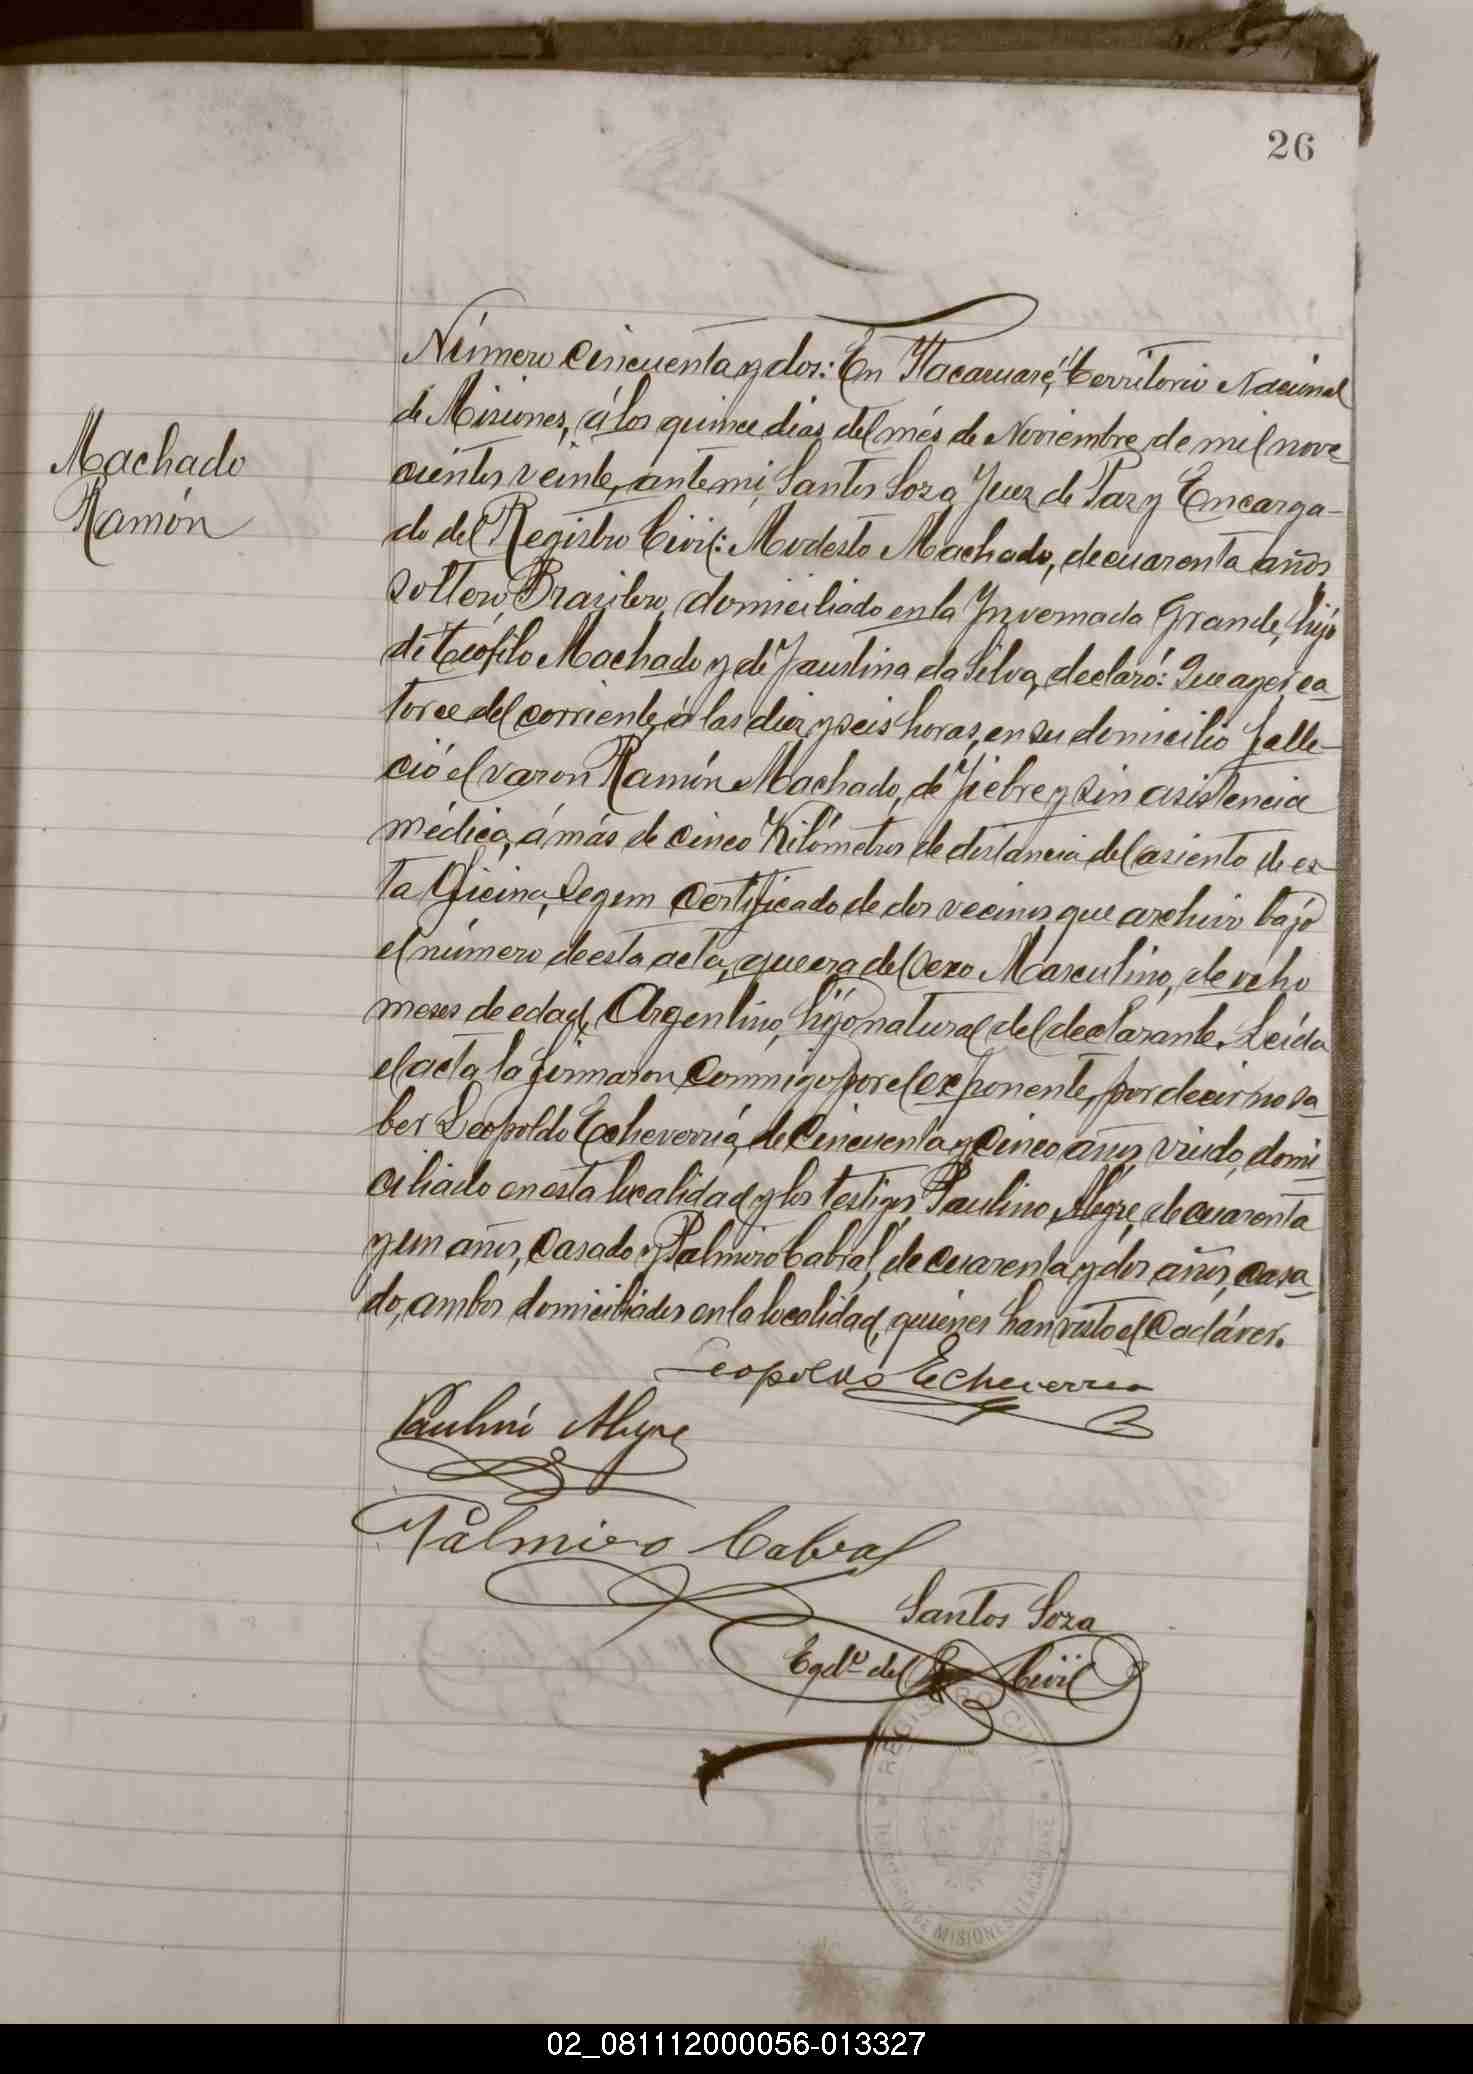 26
Machado
Ramón
Número cincuenta y dos: En Itacaruaré, Territorio Nacional
de Misiones, á los quince dias del més de Noviembre de mil nove
cientos veinte, ante mi, Santos Soza, Juez de Paz y Encarga-
do del Registro Civil: Modesto Machado, de cuarenta años
soltero Brazilero, domiciliado en la Invernada Grande, hijo
de Teófilo Machado y de Faustina da Silva, declaró: Que ayer ca
torce del corriente, á las diez y seis horas, en su domicilio falle-
ció el varon Ramón Machado, de Fiebre y sin asistencia
médica, á más de cinco Kilómetros de distancia del asiento de es-
ta Oficina, segun certificado de dos vecinos que archivo bajo
el número de esta acta, que era del sexo Masculino, de ocho
meses de edad, Argentino, hijo natural del declarante. Leída
el acta la firmaron conmigo por el exponente, por decir no sa
ber Leopoldo Echeverría, de cincuenta y cinco años, viudo, domi-
ciliado en esta localidad y los testigos Paulino Alegre, de cuarenta
y un años, casado y Palmiro Cabral, de cuarenta y dos años, casa-
do, ambos domiciliados en la localidad, quienes han visto el cadáver.
Leopoldo Echeverria
Paulino Alegre
Palmiro Cabral
Santos Soza
Egdo. del R. Civil
REGISTRO CIVIL
TERRITORIO DE MISIONES ITACARUARE
02_081112000056-013327